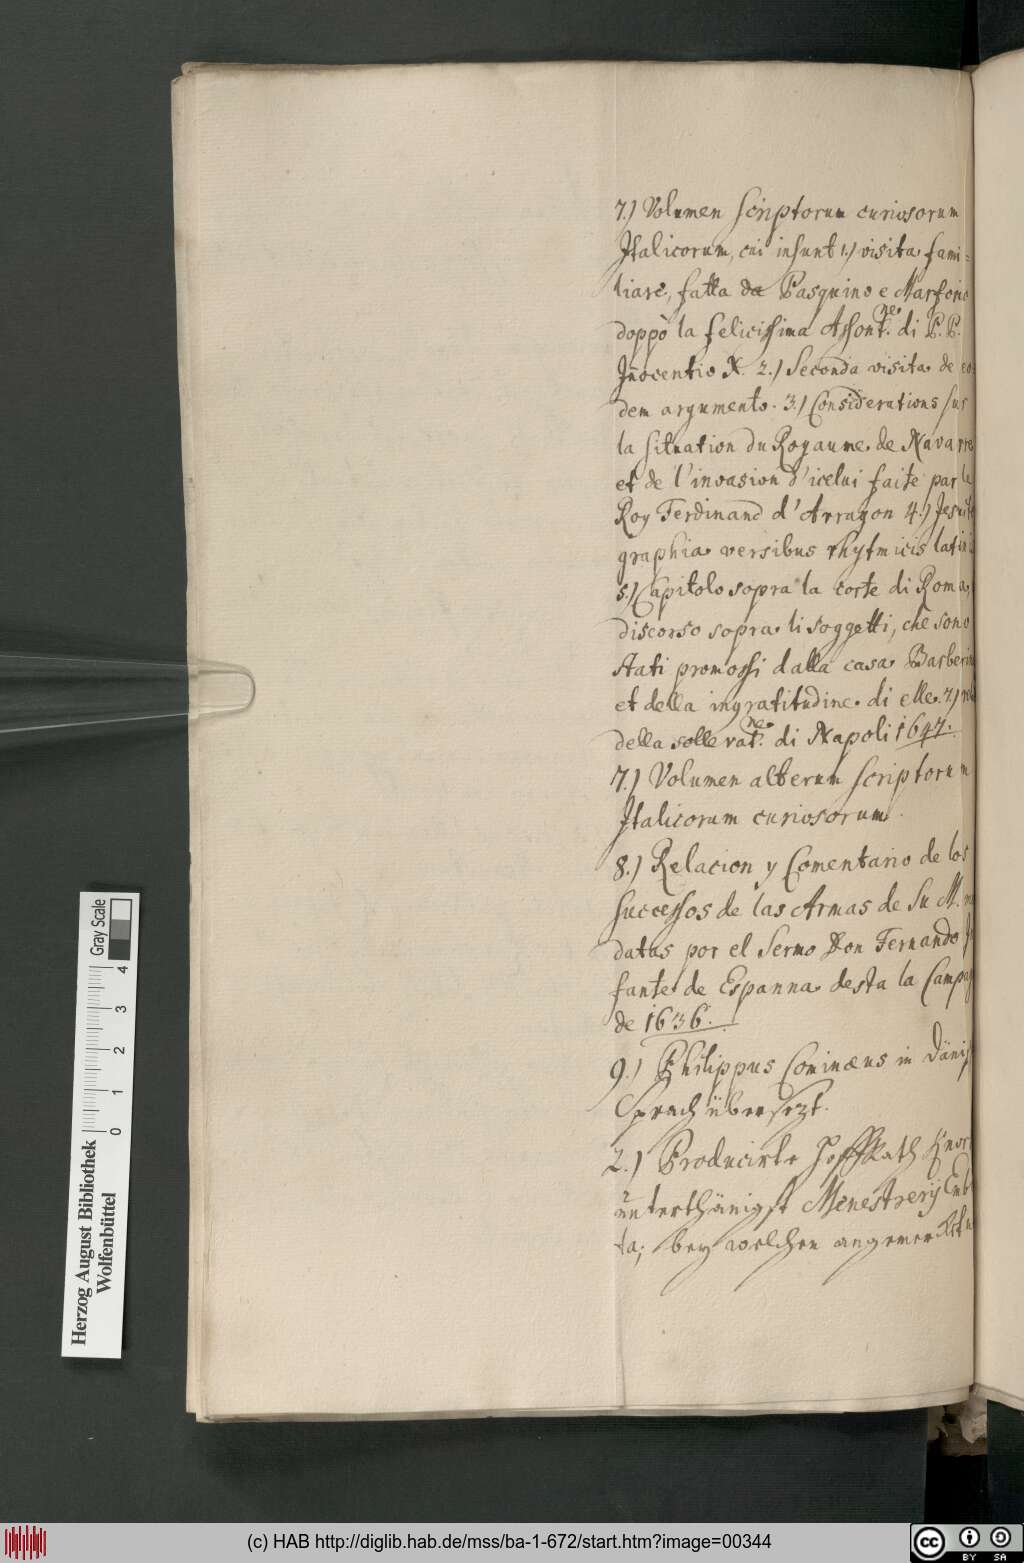 7.) Volumen scriptorum curiosorum
Italicorum, cui insunt 1.) visita fami=
liare, fatta da Pasquino e Marforio
doppò la felicissima Assont.ne di P. P.
Iñocentio X. 2.) Seconda visita de eo
dem argumento. 3.) Considerations sur
la situation du Royaume de Navarre
et de l'invasion d'icelui faite par le
Roy Ferdinand d'Arragon 4.) Jesuito
graphia versibus rhytmicis latinis
5.) Capitolo sopra la corte di Roma,
discorso sopra li soggetti, che sono
stati promossi dalla casa Barberin
et della ingratitudine di elle. 7.)
della sollevat.ne di Napoli 1647.
7.) Volumen alterum scriptorum
Italicorum curiosorum.
8.) Relacion y Comentario de los
successos de las Armas de Su M.
datas por el Sermo Don Fernando
fante de Espanna desta la Campag
de 1636.
9.) Philippus Cominæus in Dänis
Sprach übersezt.
2.) Producirte HoffRath
unterthänigst Menestrerij
ta; bey welchen angemerckt
Herzog August Bibliothek
Wolfenbüttel
0 1 2 3 4
Gray Scale
(c) HAB http://diglib.hab.de/mss/ba-1-672/start.htm?image=00344
cc BY SA